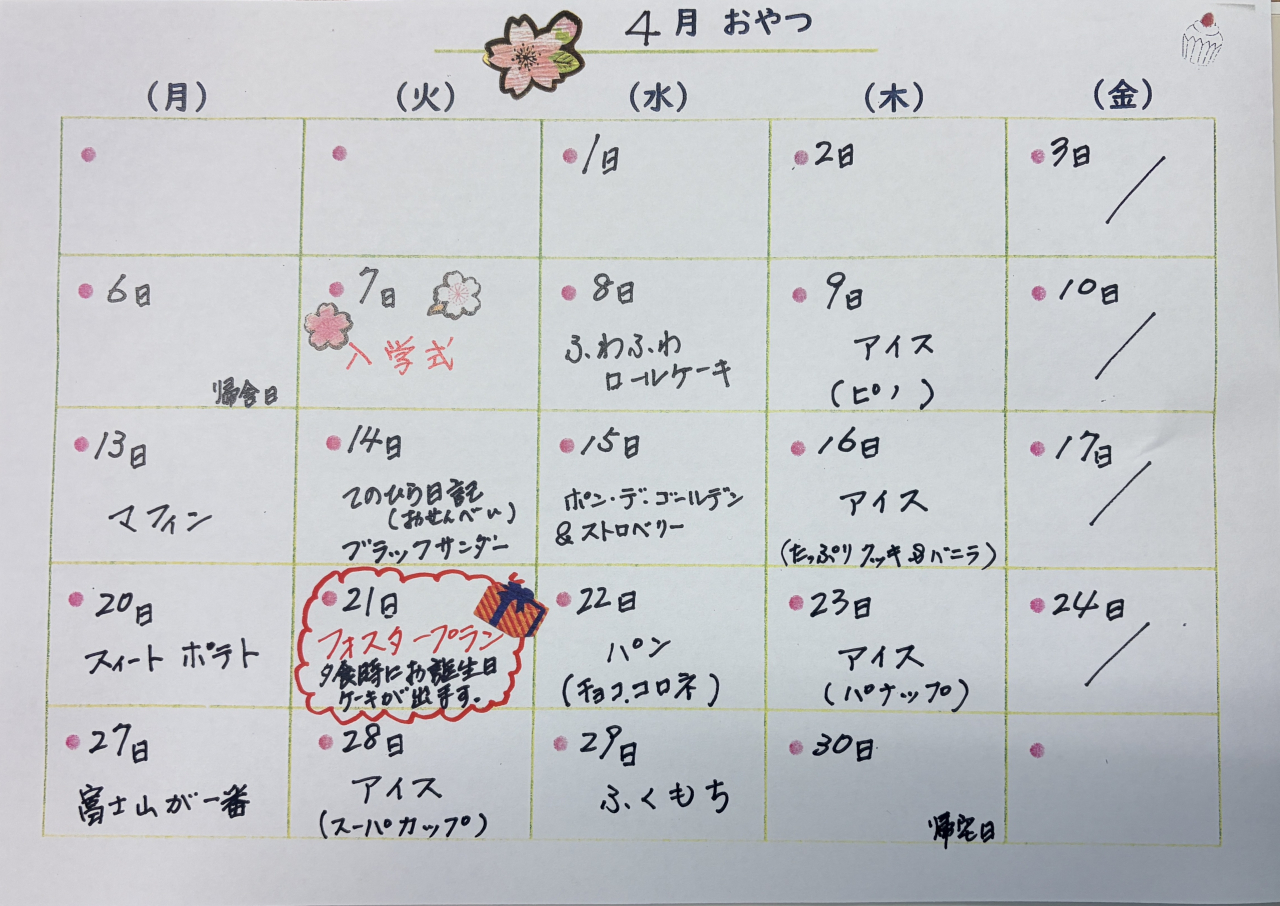 4月 おやつ
(月) (火) (水) (木) (金)
1日 2日 3日
6日
帰舎日
7日
入学式
8日
ふわふわ
ロールケーキ
9日
アイス
(ピノ)
10日
13日
マフィン
14日
てのひら日記
(おせんべい)
ブラックサンダー
15日
ポン・デ・ゴールデン
&ストロベリー
16日
アイス
(たっぷりクッキー&バニラ)
17日
20日
スィートポテト
21日
フォスタープラン
夕食時にお誕生日
ケーキが出ます。
22日
パン
(チョココロネ)
23日
アイス
(パナップ)
24日
27日
富士山が一番
28日
アイス
(スーパカップ)
29日
ふくもち
30日
帰宅日